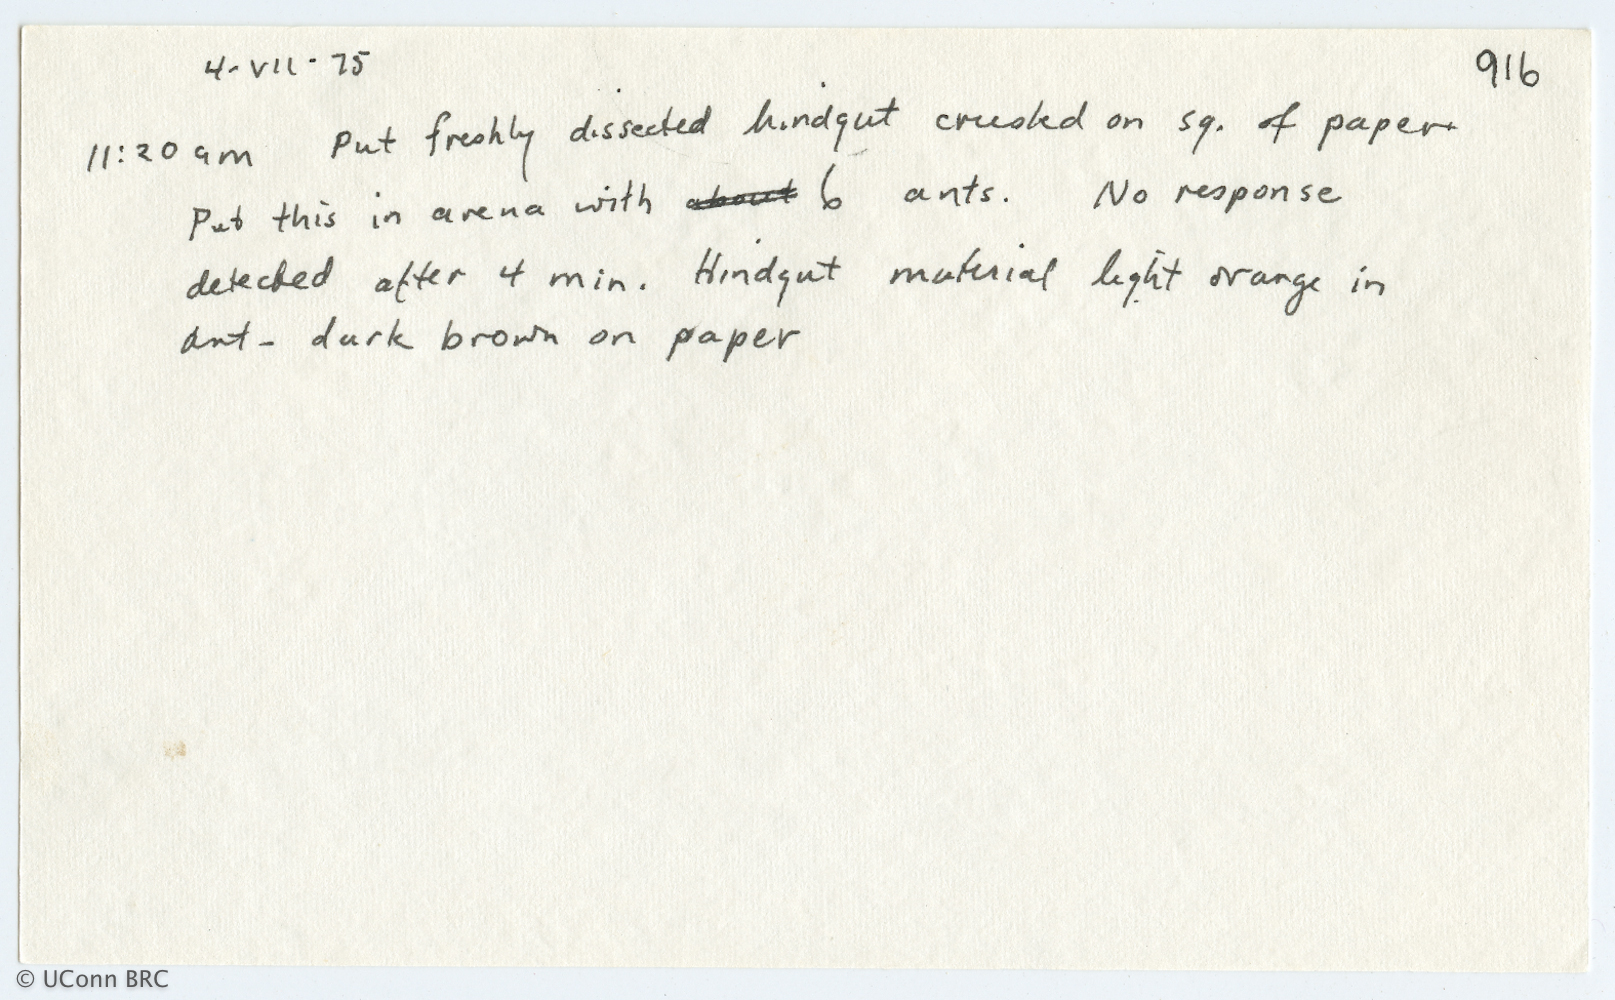 4-VII-75
916
11:20 am Put freshly dissected hindgut crushed on sq. of paper.
Put this in arena with about 6 ants. No response
detected after 4 min. Hindgut material light orange in
ant - dark brown on paper
© UConn BRC